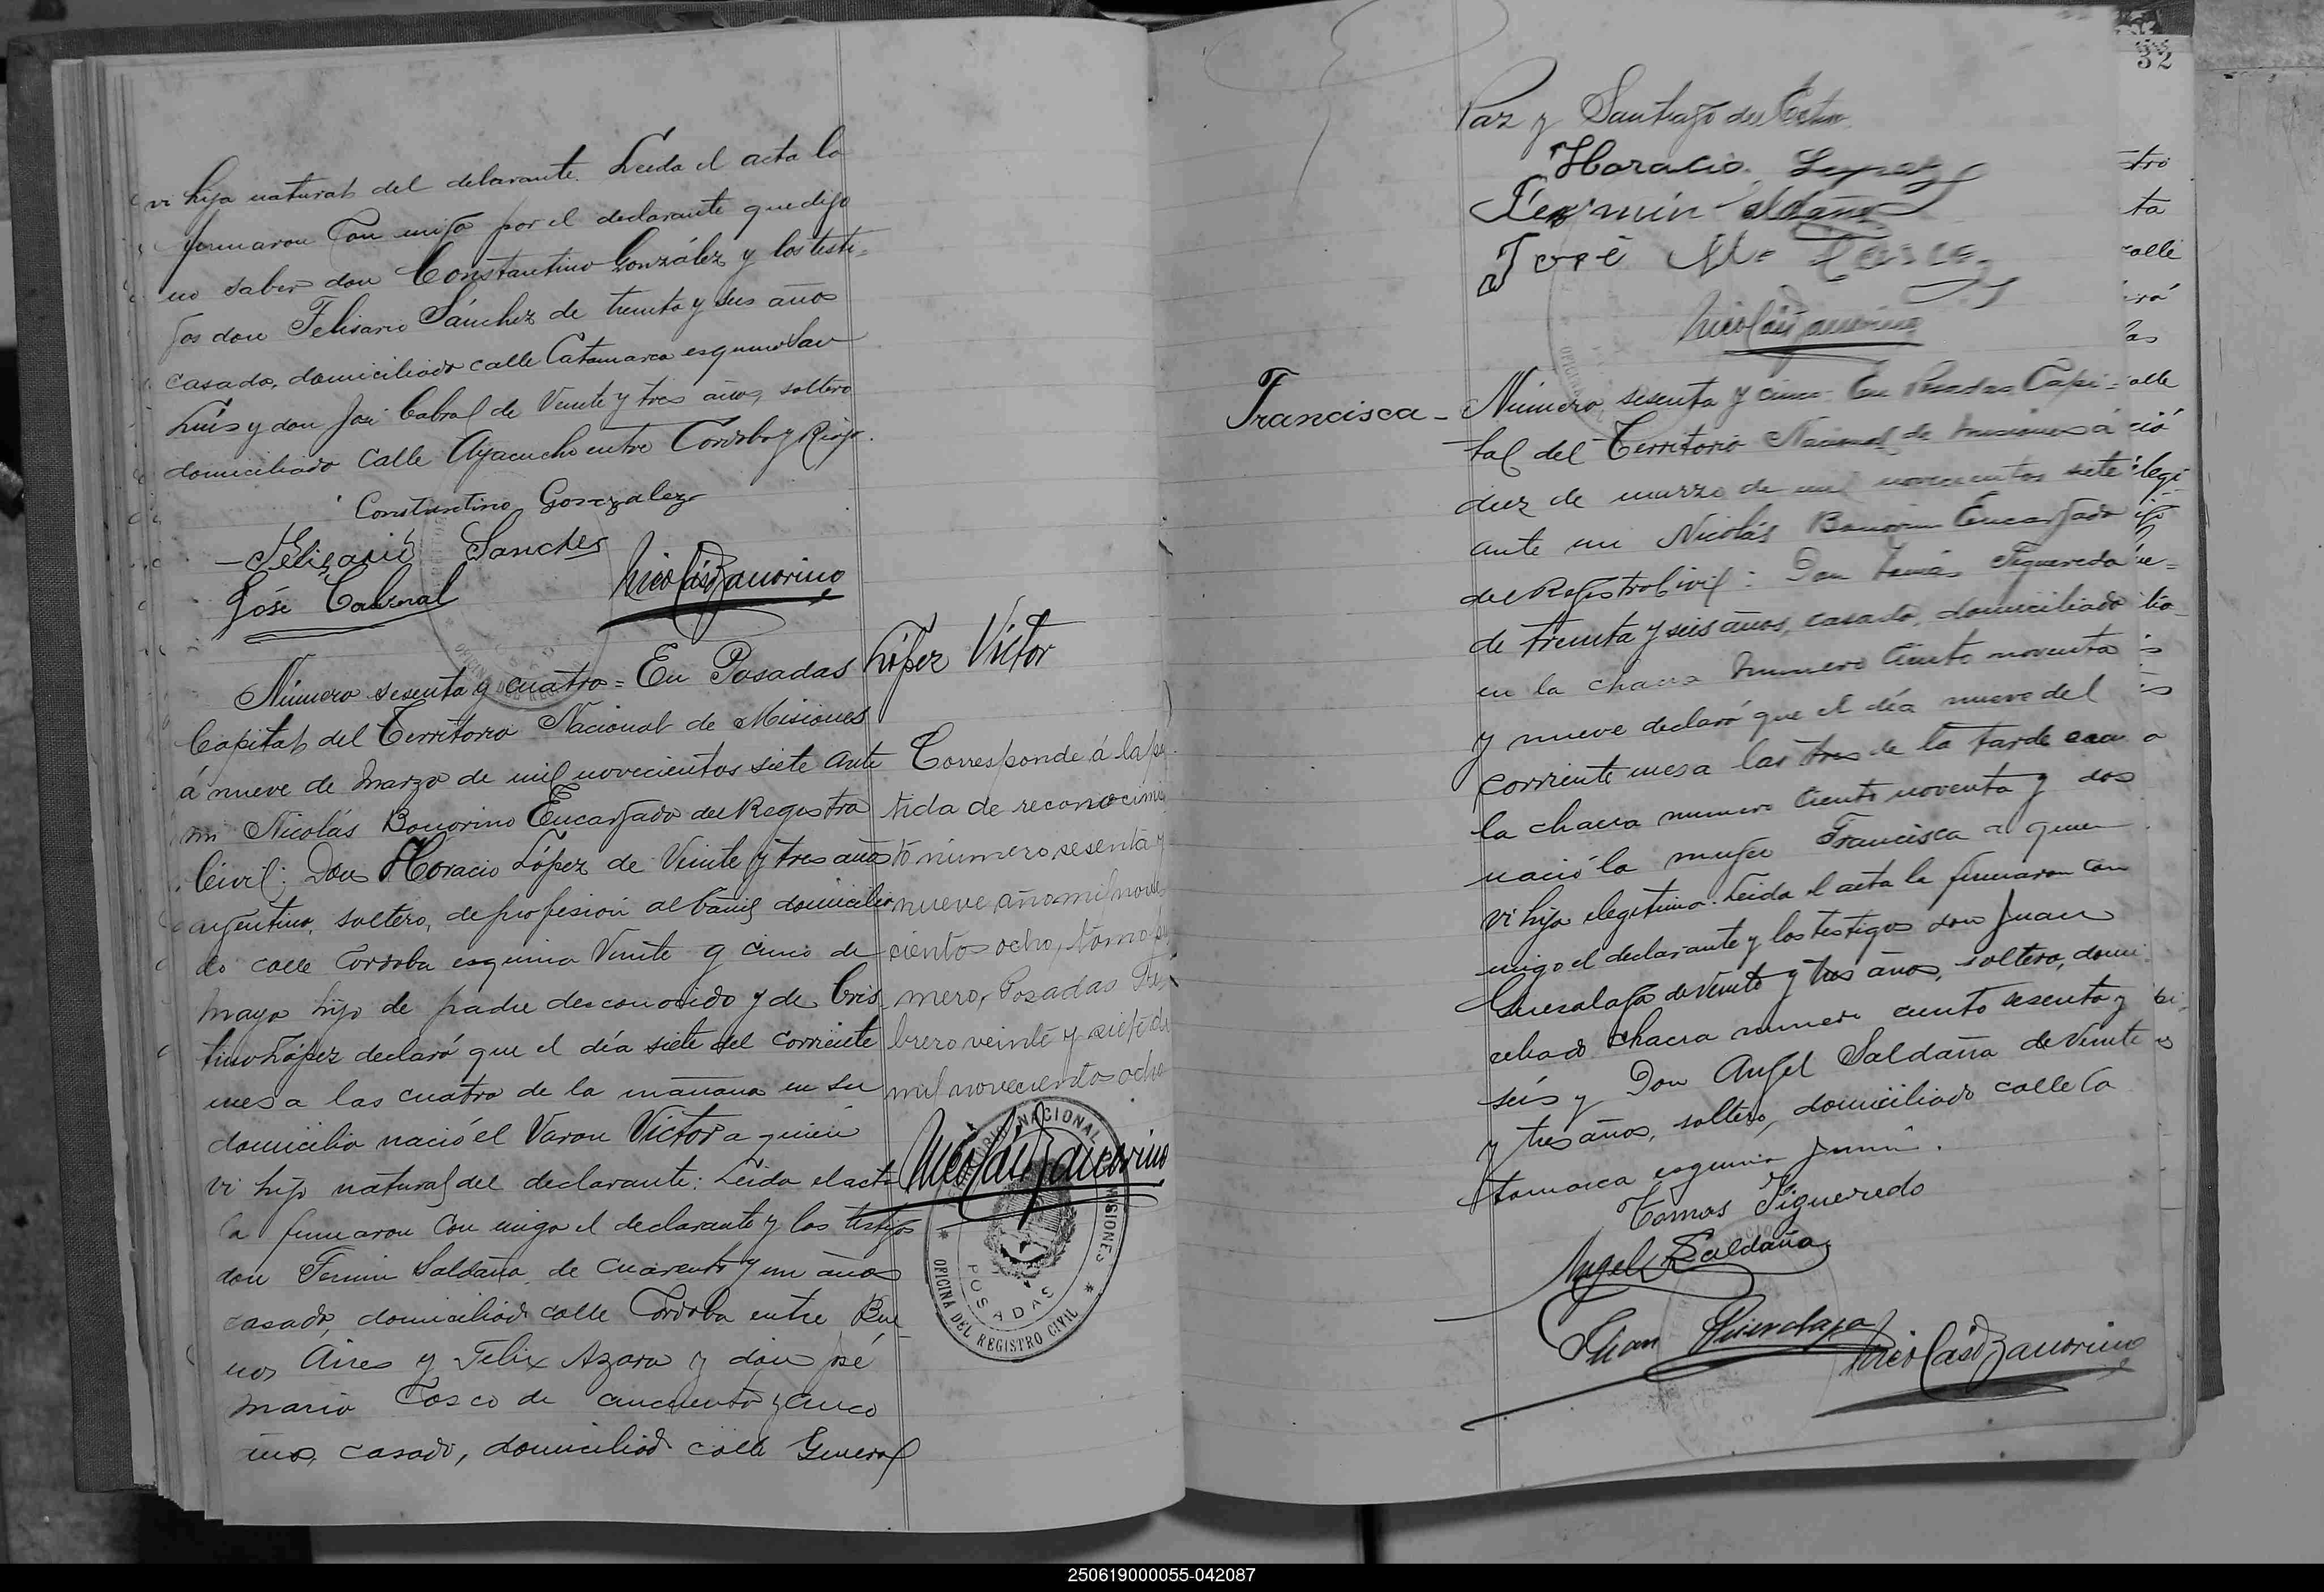 vi hija natural del declarante. Leida el acta la
firmaron con migo por el declarante que dijo
no saber don Constantino González y los testi=
gos don Felisario Sánchez de treinta y seis años
casado, domiciliado calle Catamarca esquina San
Luis y don José Cabral de Veinte y tres años, soltero
domiciliado Calle Ayacucho entre Cordoba y Rioja.
Constantino Gonzalez
Felisario Sanches
José Cabral
Nicolás Bonorino
Número sesenta y cuatro = En Posadas
Capital del Territorio Nacional de Misiones
á nueve de Marzo de mil novecientos siete Ante
mi Nicolás Bonorino Encargado del Registro
Civil: Don Horacio López de Veinte y tres años
argentino, soltero, de profesión albañil domicilia
do calle Cordoba esquina Veinte y cinco de
Mayo hijo de padre desconocido y de Cris
tina López declaró que el día siete del corriente
mes a las cuatro de la mañana en su
domicilio nació el Varon Victor a quien
vi hijo natural del declarante: Leida el acta
la firmaron con migo el declarante y los testigos
don Fermin Saldaña de cuarenta y un años
casado, domiciliado calle Cordoba entre Bue
nos Aires y Felix Azara y don José
Maria Tosco de cincuenta y cinco
años, casado, domiciliado calle General
López Victor
Corresponde á la par
tida de reconocimi
to número sesenta y
nueve año mil nove
cientos ocho, tomo pri
mero, Posadas Fe
brero veinte y siete de
mil novecientos ocho
Nicolás Bonorino
NACIONAL
MISIONES
POSADAS
OFICINA DEL REGISTRO CIVIL
32
Paz y Santiago del Estero
Horacio Lopez
Fermín Saldaña
José Ma
Nicolás Bonorino
Francisca -
Número sesenta y cinco = En Posadas Capi=
tal del Territorio Nacional de Misiones á
diez de marzo de mil novecientos siete
ante mi Nicolás Bonorino Encargado
del Registro Civil: Don Tomás Figueredo
de treinta y seis años, casado, domiciliado
en la chacra numero Ciento noventa
y nueve declaró que el día nueve del
corriente mes a las tres de la tarde en
la chacra numero Ciento noventa y dos
nació la mujer Francisca a quien
vi hija elegitima. Leida el acta la firmaron con
migo el declarante y los testigos don Juan
Guesalaga de Veinte y tres años, soltero, domi
ciliado chacra numero ciento sesenta y
séis y Don Angel Saldaña de Veinte
y tres años, soltero, domiciliado calle Ca
tamarca esquina Junin.
Tomas Figueredo
Angel Saldaña
Juan Guesalaga
Nicolás Bonorino
250619000055-042087